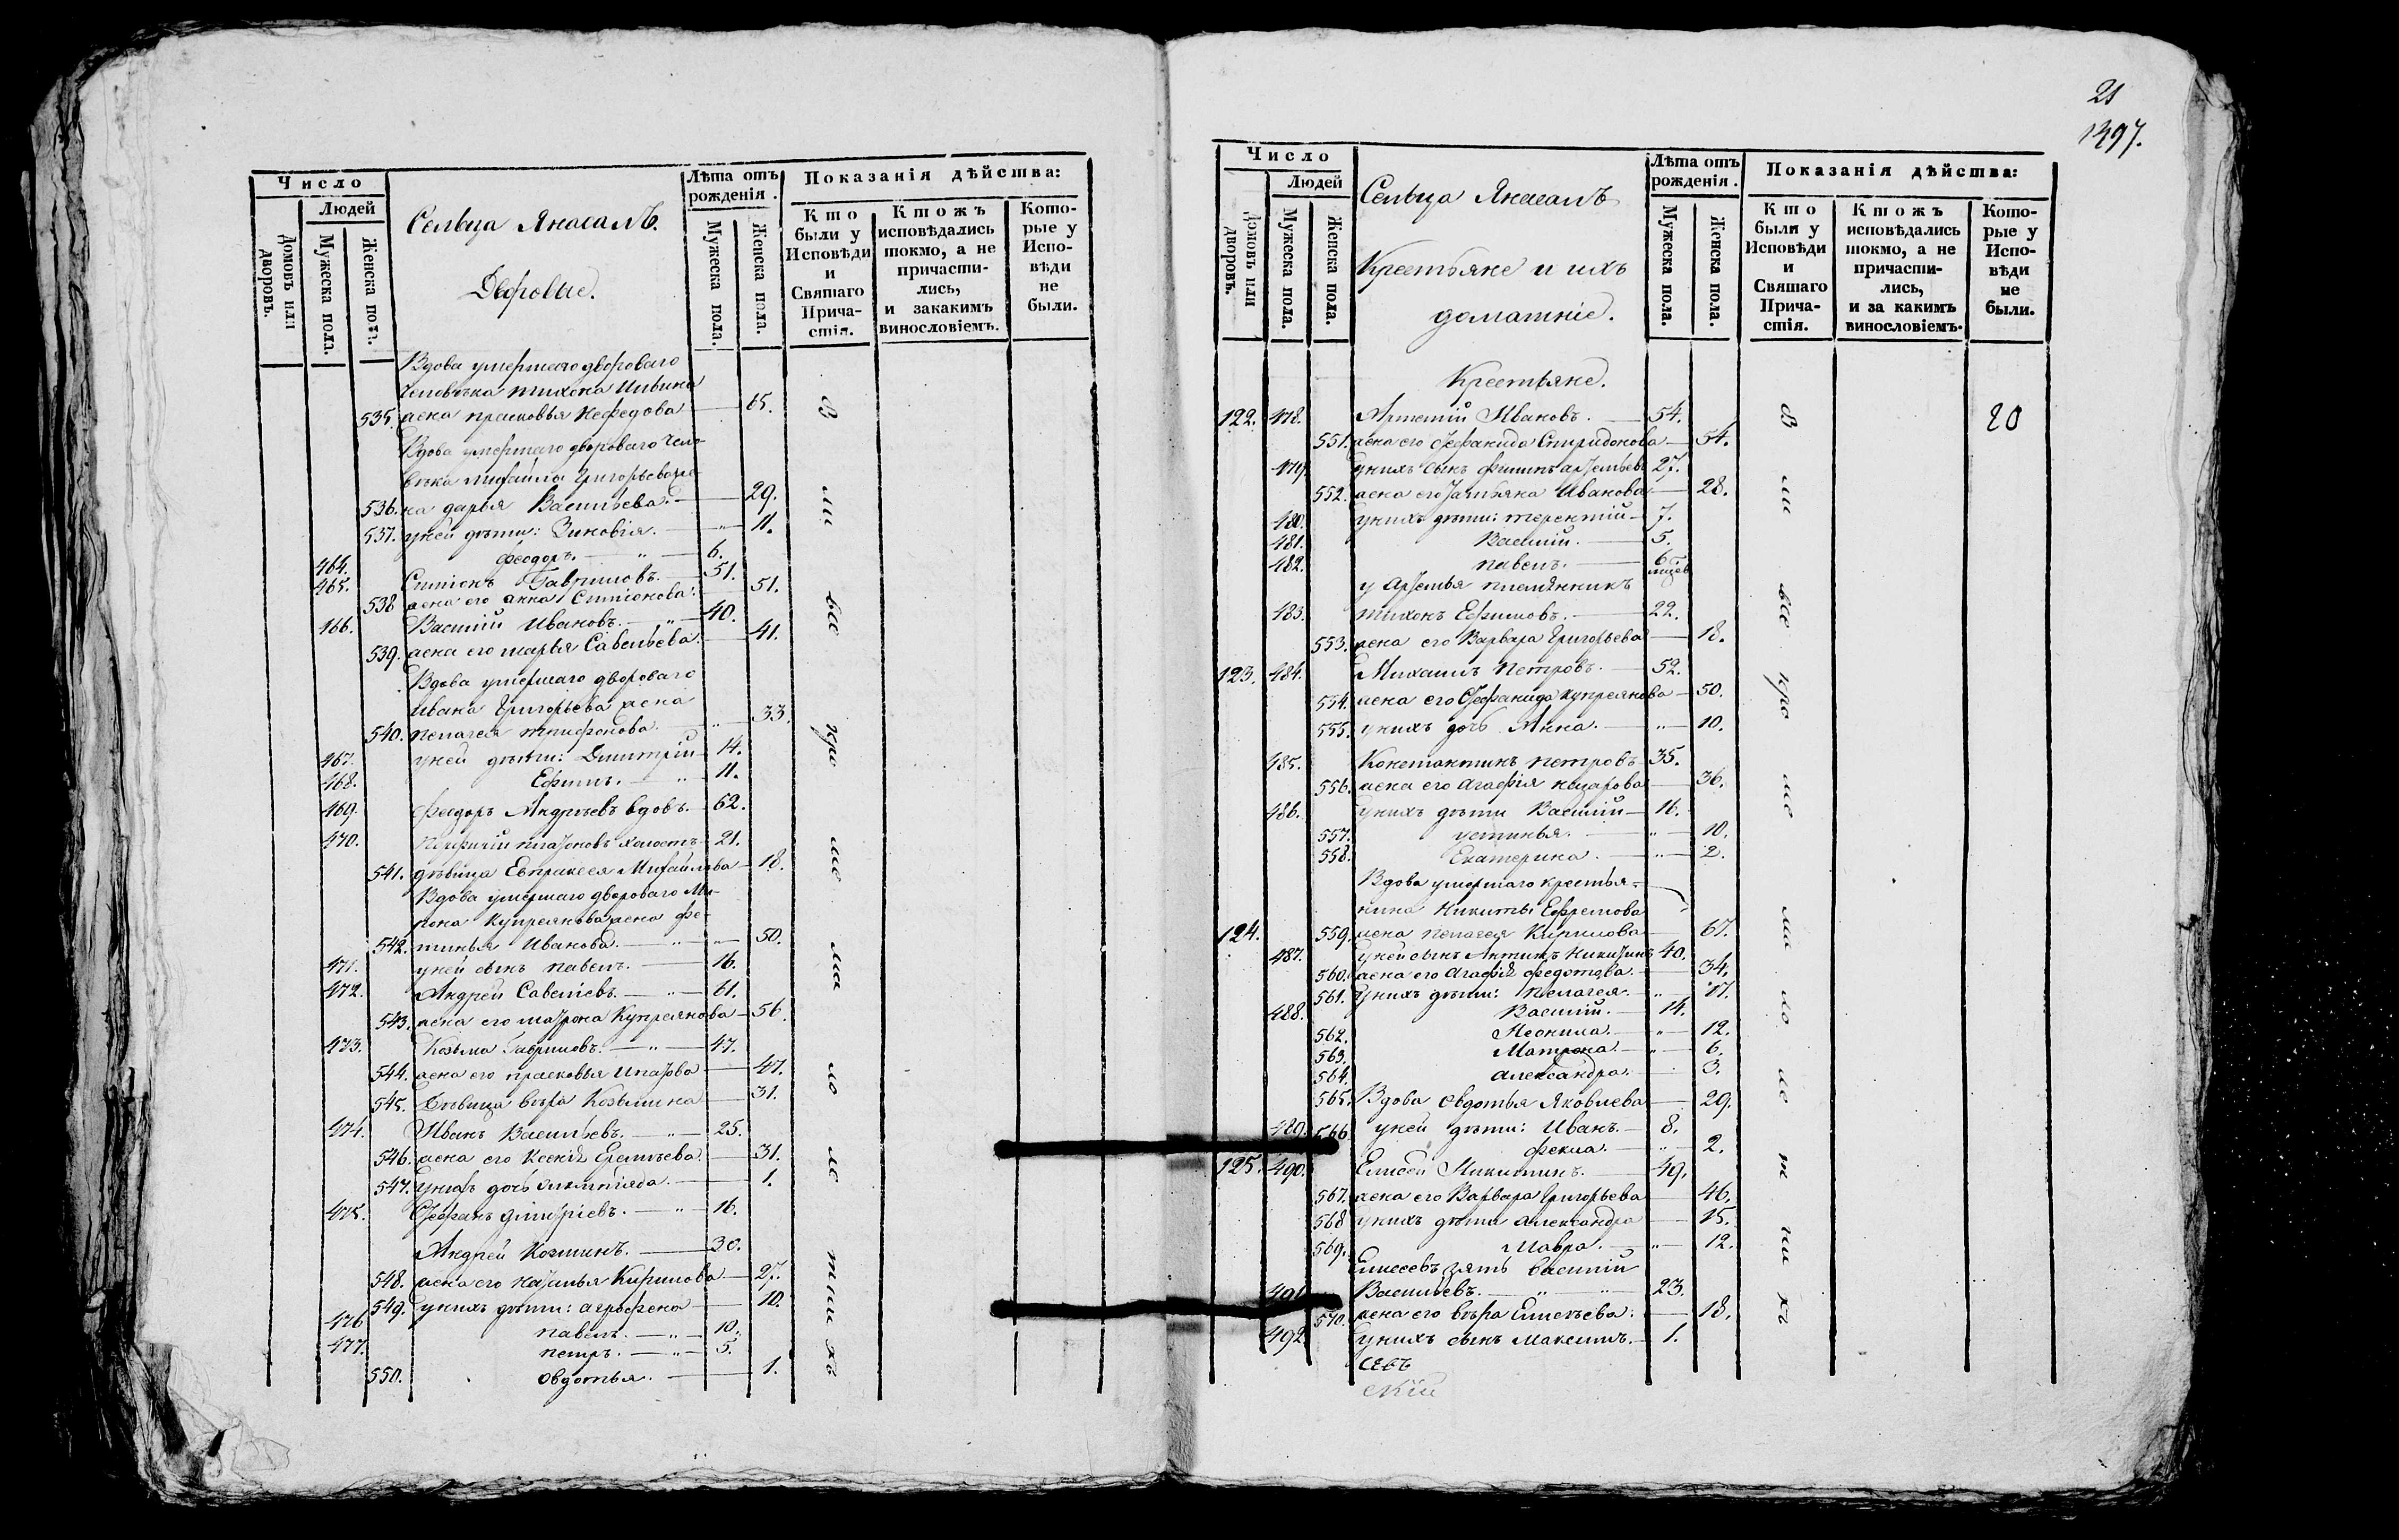 Число
Людей
Домовъ или дворовъ.
Мужеска пола.
Женска пола.
Сельца
Дворовые.
Лѣта отъ рожденія.
Мужеска пола.
Женска пола.
Показанія дѣйства:
Кто были у Исповѣди и Святаго Прича-стія.
Ктожъ исповѣдались токмо, а не причасти-лись, и закакимъ винословіемъ.
Кото-рые у Испо-вѣди не были.
Вдова умершаго двороваго
человѣка Тихона
535. жена Прасковья Нефедова 65.
Вдова умершаго двороваго чело-
вѣка Михайлы Григорьева же-
536. на Дарья Васильева. 29.
537. у ней дѣти: Зиновія. 11.
464. Феодоръ. 6.
465. Гавриловъ. 51.
538 жена его Анна 51.
466. Василій Ивановъ. 40.
539. жена его Марья Савельева. 41.
Вдова умершаго двороваго
Ивана Григорьева жена
540. Пелагея 33.
467. у ней дѣти: Димитрій 14.
468. Ефимъ. 11.
469. Феодоръ Андреевъ вдовъ. 62.
470. холостъ 21.
541. дѣвица Евпраксея Михайлова 18.
Вдова умершаго двороваго Ми-
рона Купреянова жена Фе-
542. тинья Иванова. 50.
471. у ней сынъ Павелъ. 16.
472. Андрей 61.
543. жена его Матрона Купреянова 56.
473. Козьма Гавриловъ. 47.
544. жена его Прасковья 47.
545. Дѣвица Вѣра Козьмина 31.
474. Иванъ Васильевъ. 25.
546. жена его Ксенія 31.
547. у нихъ дочь 1.
475. Стефанъ Димитріевъ. 16.
Андрей Козминъ. 30.
548. жена его Наталья Кирилова 27.
549. у нихъ дѣти: Аграфена 10.
476 Павелъ. 10.
477. Петръ. 5.
550. Овдотья. 1.
21
1497.
Число
Людей
Домовъ или дворовъ.
Мужеска пола.
Женска пола.
Сельца
Крестьяне и ихъ
домашніе.
Лѣта отъ рожденія.
Мужеска пола.
Женска пола.
Показанія дѣйства:
Кто были у Исповѣди и Святаго Прича-стія.
Ктожъ исповѣдались токмо, а не причасти-лись, и за какимъ винословіемъ.
Кото-рые у Испо-вѣди не были.
Крестьяне.
122. 478. Артемій Ивановъ. 54. 20
551. жена его Стефанида Спиридонова 54.
479 у нихъ сынъ Филипъ Артемьевъ 27.
552. жена его Татьяна Иванова 28.
480. у нихъ дѣти: Терентій 7.
481. Василій. 5.
482. Павелъ. 6
у Артемья племянникъ
483. Тихонъ Ефимовъ. 22.
553. жена его Варвара Григорьева 18.
123. 484. Михаилъ Петровъ. 52.
554. жена его Стефанида Купреянова 50.
555. у нихъ дочь Анна. 10.
485. Константинъ Петровъ 35.
556. жена его Агафія 36.
486. у нихъ дѣти Василій 16.
557. Устинья. 10.
558. Екатерина. 2.
Вдова умершаго крестья-
нина Никиты Ефремова
124. 559. жена Пелагея Кирилова 67.
487. у ней сынъ Антипъ Никитинъ 40.
560. жена его Агафія Федотова. 34.
561. у нихъ дѣти: Пелагея. 17.
488. Василій. 14.
562. Неонила. 12.
563. Матрона. 6.
564. Александра. 3.
565. Вдова Овдотья Яковлева 29.
489. у ней дѣти: Иванъ. 8.
566 Фекла. 2.
125. 490. Елисей Никитинъ. 49.
567. жена его Варвара Григорьева 46.
568 у нихъ дѣти Александра 15.
569. Мавра. 12.
Елисеевъ зять Василій
491 Васильевъ. 23.
570. жена его Вѣра Елисѣева. 18.
492 у нихъ сынъ Максимъ. 1.